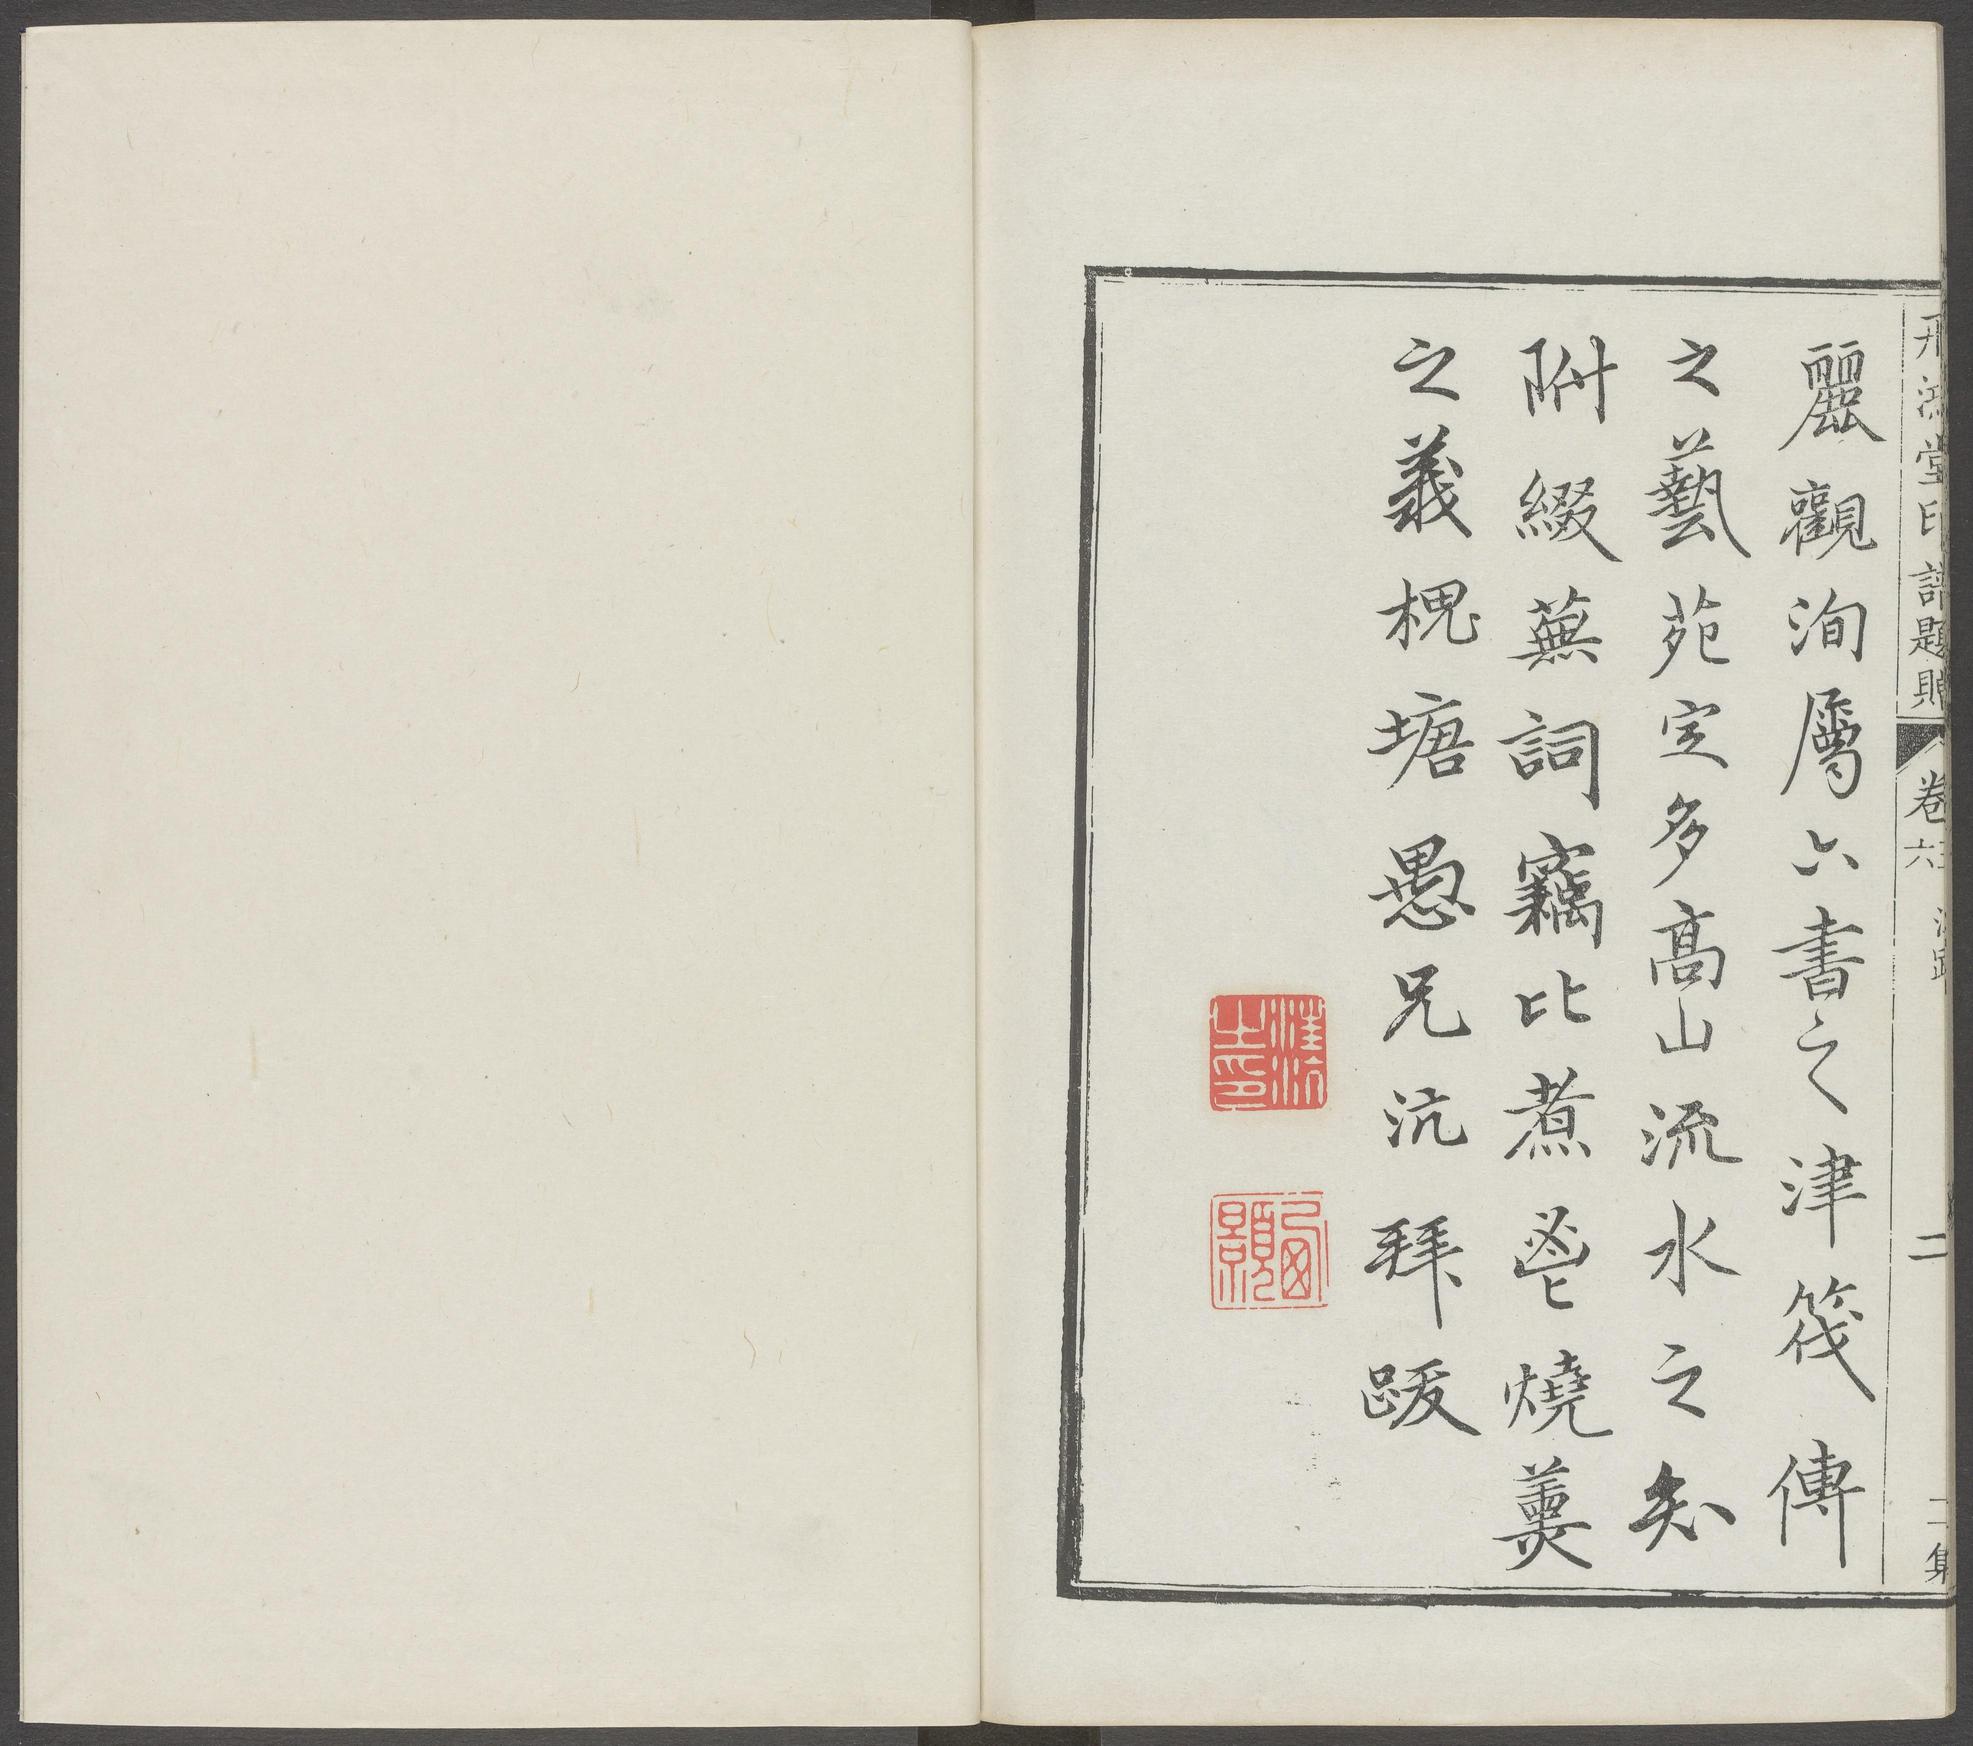 麗觀洵屬六書之津筏傳
之藝苑定多高山流水之知
附綴蕪詞竊比煮鬯燒䔧
之義槐塘愚兄沆拜跋
堂印譜題贈
卷六
二
二集
汪沆之印